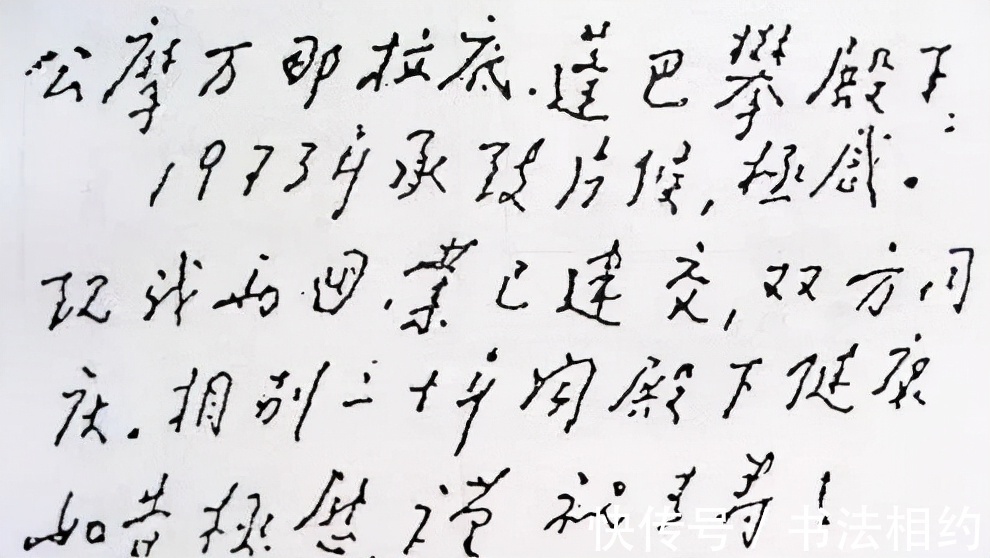 公摩万那拉底.蓬巴攀殿下:
1973年承致片候,极感.
现我两国.业已建交,双方同
庆.相别二十年闻殿下健康
如昔极慰谨祝青寿!
快传号/书法相约